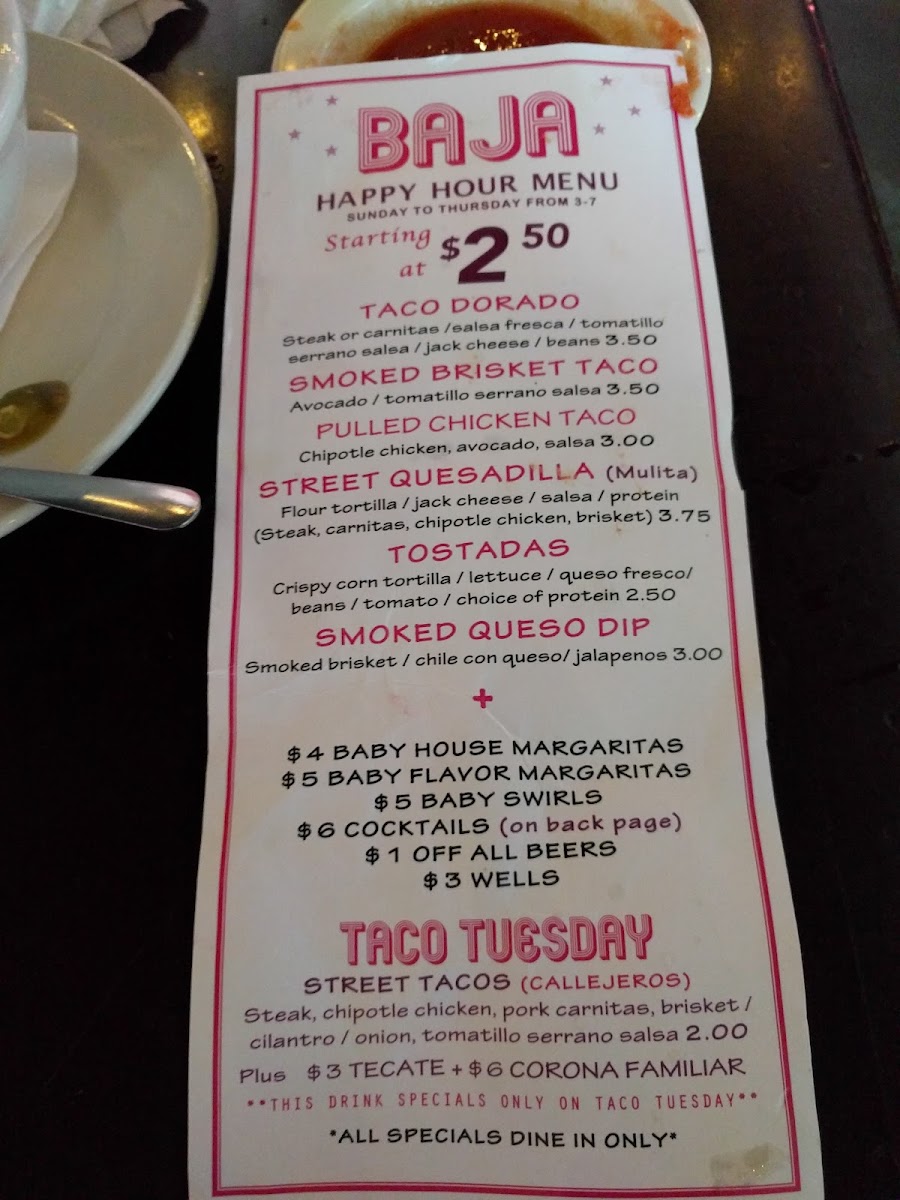 BAJA
HAPPY HOUR MENU
SUNDAY TO THURSDAY FROM 3-7
Starting at $2 50
TACO DORADO
Steak or carnitas /salsa fresca / tomatillo
serrano salsa / jack cheese / beans 3.50
SMOKED BRISKET TACO
Avocado / tomatillo serrano salsa 3.50
PULLED CHICKEN TACO
Chipotle chicken, avocado, salsa 3.00
STREET QUESADILLA (Mulita)
Flour tortilla / jack cheese / salsa / protein
(Steak, carnitas, chipotle chicken, brisket) 3.75
TOSTADAS
Crispy corn tortilla / lettuce / queso fresco/
beans / tomato / choice of protein 2.50
SMOKED QUESO DIP
Smoked brisket / chile con queso/ jalapenos 3.00
+
$4 BABY HOUSE MARGARITAS
$5 BABY FLAVOR MARGARITAS
$5 BABY SWIRLS
$6 COCKTAILS (on back page)
$1 OFF ALL BEERS
$3 WELLS
TACO TUESDAY
STREET TACOS (CALLEJEROS)
Steak, chipotle chicken, pork carnitas, brisket /
cilantro / onion, tomatillo serrano salsa 2.00
Plus $3 TECATE + $6 CORONA FAMILIAR
**THIS DRINK SPECIALS ONLY ON TACO TUESDAY**
*ALL SPECIALS DINE IN ONLY*